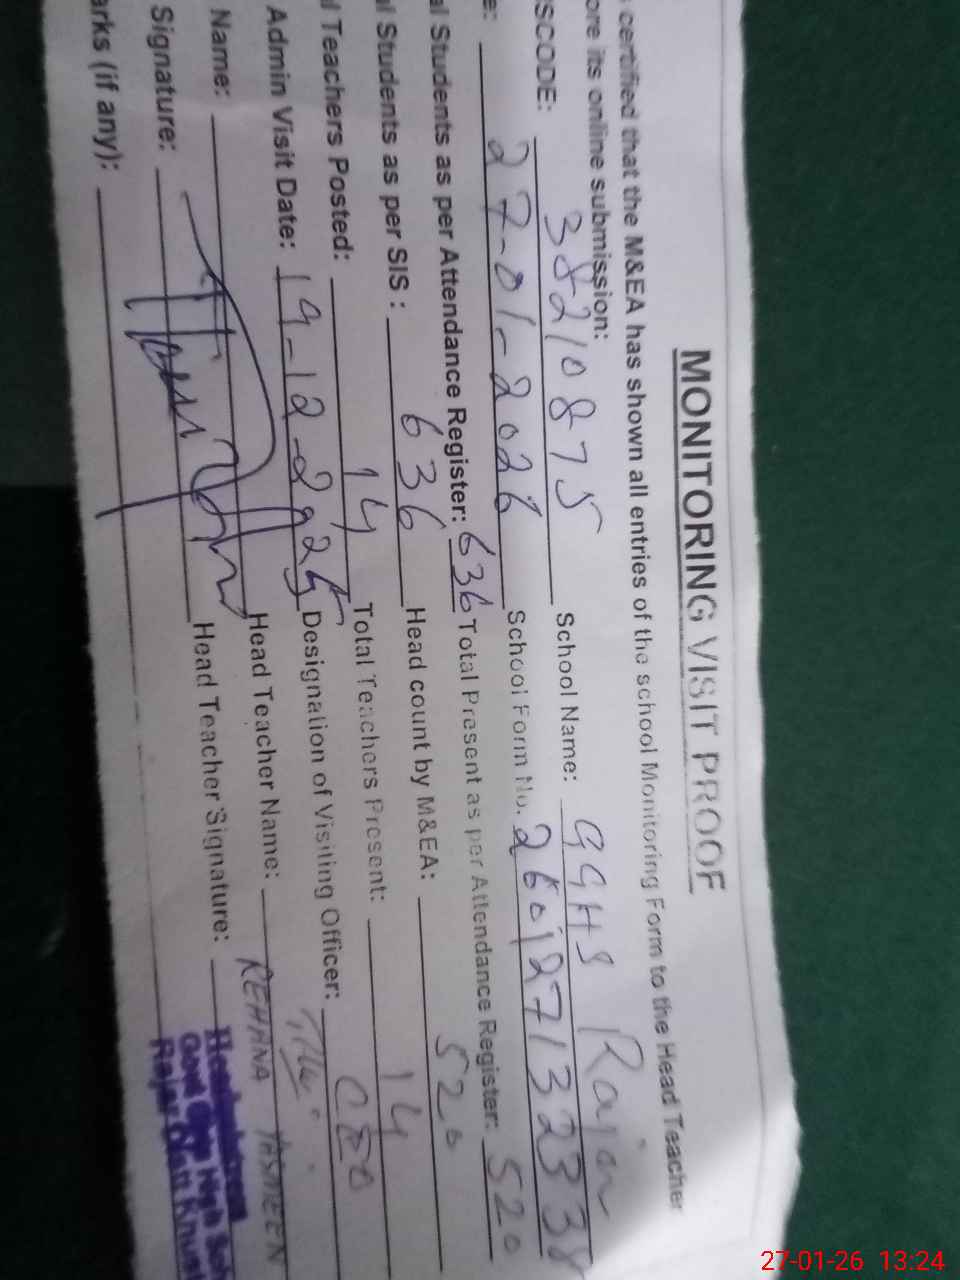 MONITORING VISIT PROOF
certified that the M&EA has shown all entries of the school Monitoring Form to the Head Teacher
ore its online submission:
SCODE: 38210875 School Name: GGHS Rajar
e: 27-01-2026 School Form No. 260127132338
al Students as per Attendance Register: 636 Total Present as per Attendance Register: 520
al Students as per SIS : 636 Head count by M&EA: 520
l Teachers Posted: 14 Total Teachers Present: 14
Admin Visit Date: 19-12-2025 Designation of Visiting Officer: CEO
Name: Head Teacher Name: REHANA YASMEEN
Signature: Head Teacher Signature:
arks (if any):
Headmistress
Govt Girls High Sch
Rajar
27-01-26 13:24